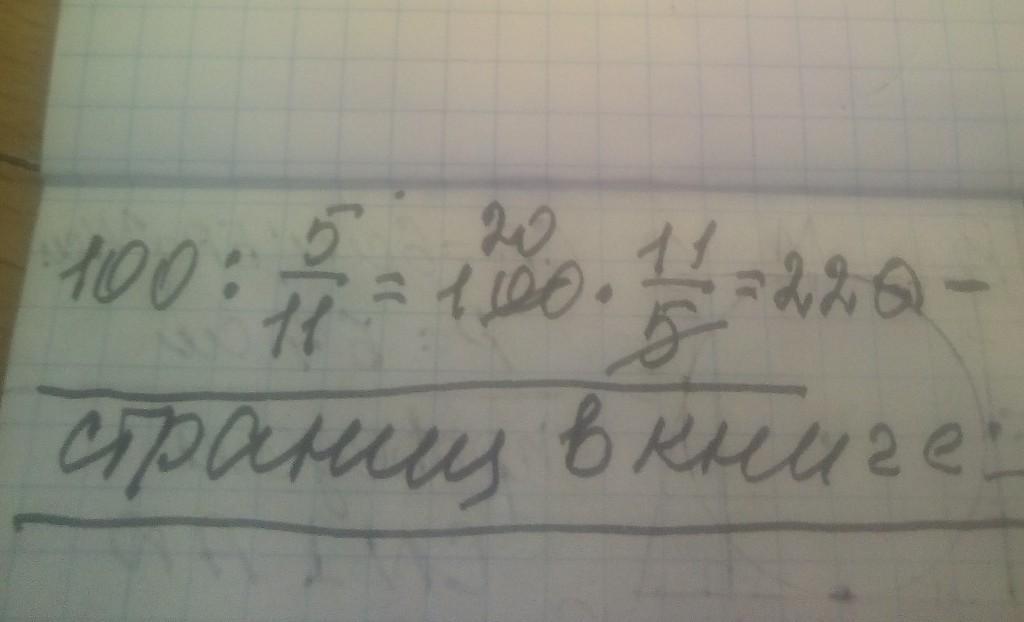 100 : 5/11 = 100 20 · 11/5 = 220 –
страниц в книге.